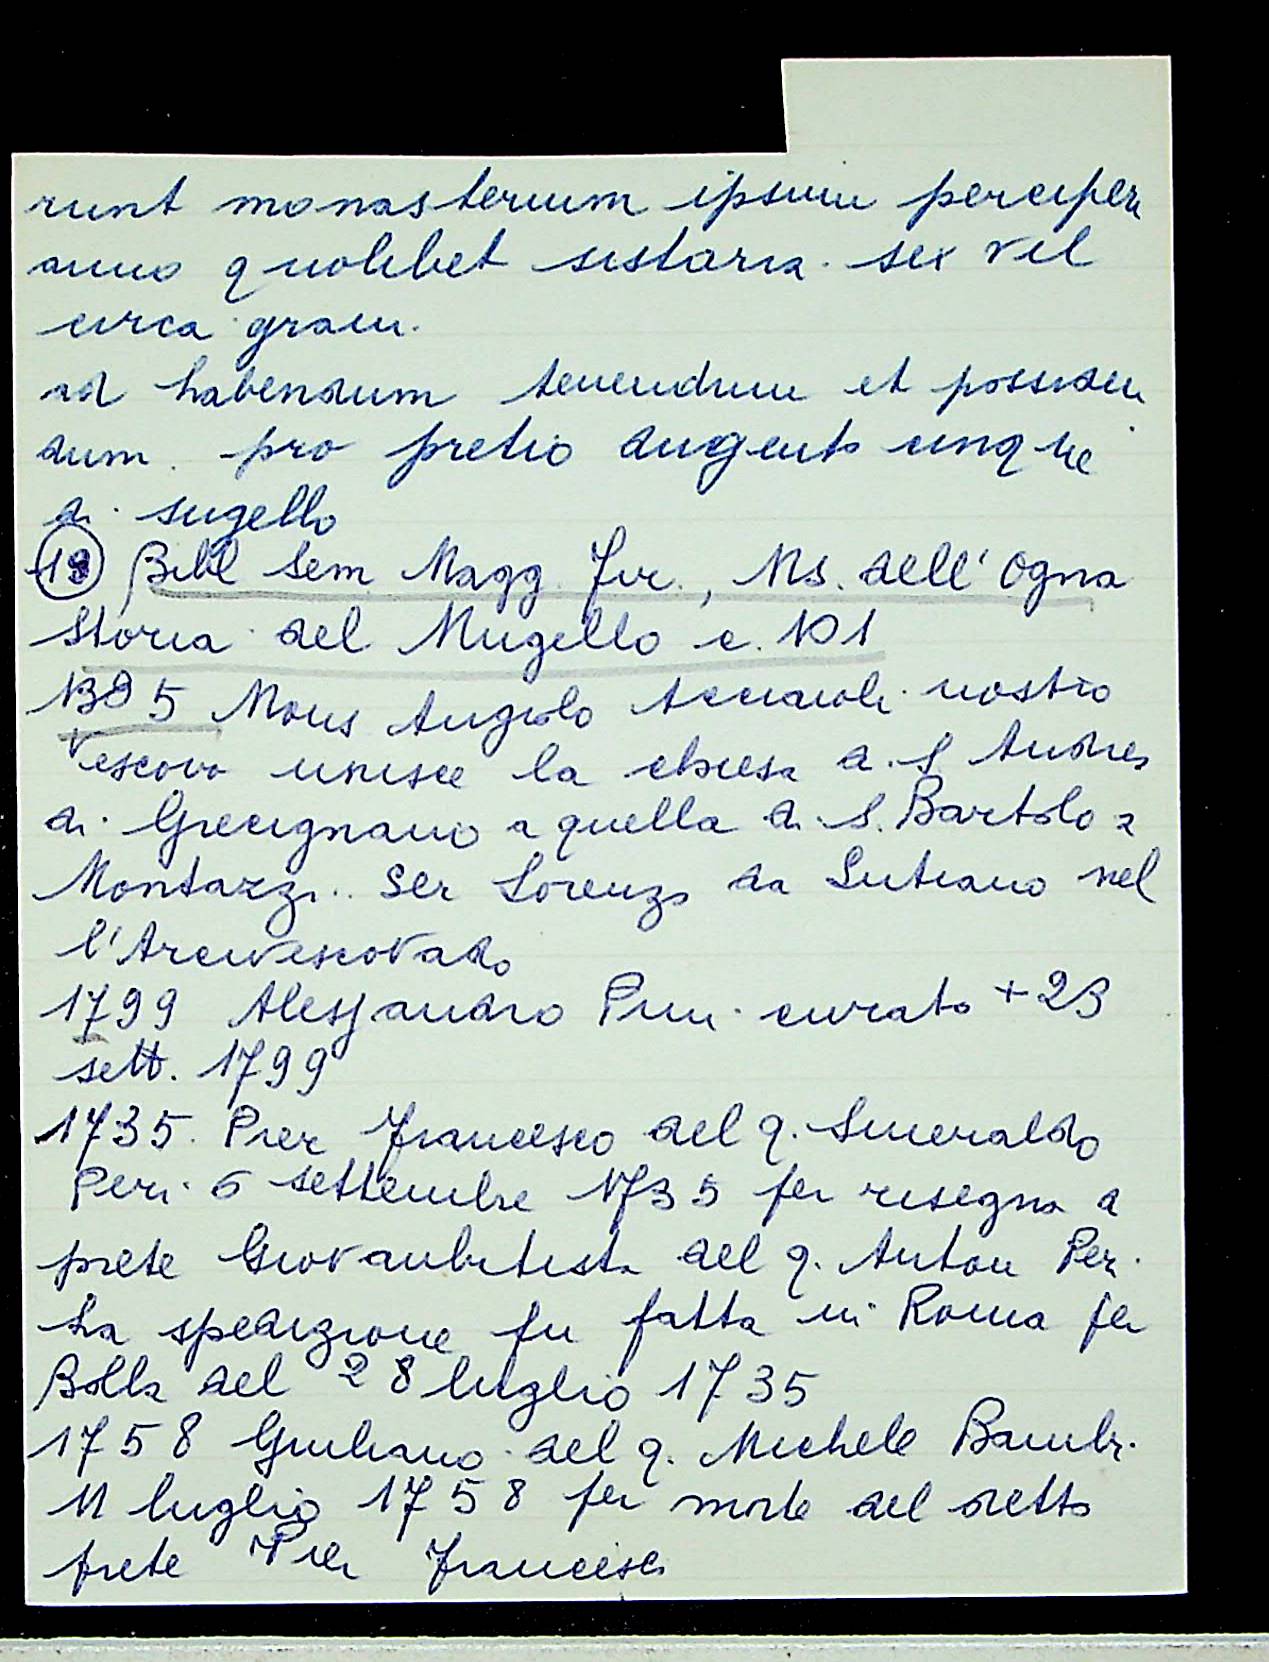 runt monasterium ipsum perciper
anno quolibet sistaria. sex vel
circa grani.
ad habendum tenendum et possiden
dum. pro pretio dugento cinque
di sugello
19 Bibl Sem Magg. Fir., Ms. dell'Ogna
Storia del Mugello c. 101
1385 Mons Angiolo Acciaioli nostro
Vescovo unisce la chiesa di S Andrea
di Grecignano a quella di S. Bartolo a
Montazzi.. Ser Lorenzo da Lutiano nel
l'Arcivescovado
1799 Alessandro Pini curato + 23
sett. 1799
1735. Pier Francesco del q. Smeraldo
Peri. 6 settembre 1735 per risegna a
prete Giovanbatista del q. Anton Peri.
La spedizione fu fatta in Roma per
Bolla del 28 luglio 1735
1758 Giuliano del q. Michele Bambi.
11 luglio 1758 per morte del detto
prete Pier Francesco